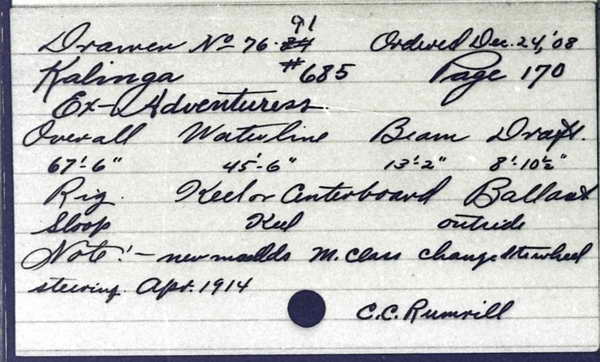 91
Drawer No 76. 84 Ordered Dec. 24, '08
Kalinga #685 Page 170
Ex-Adventuress.
Overall Waterline Beam Draft.
67'-6" 45'-6" 13'-2" 8'-10½"
Rig. Keel or Centerboard Ballast
Sloop Keel outside
Note:- new moulds M. Class change to wheel
steering. Apr. 1914
C.C. Rumrill